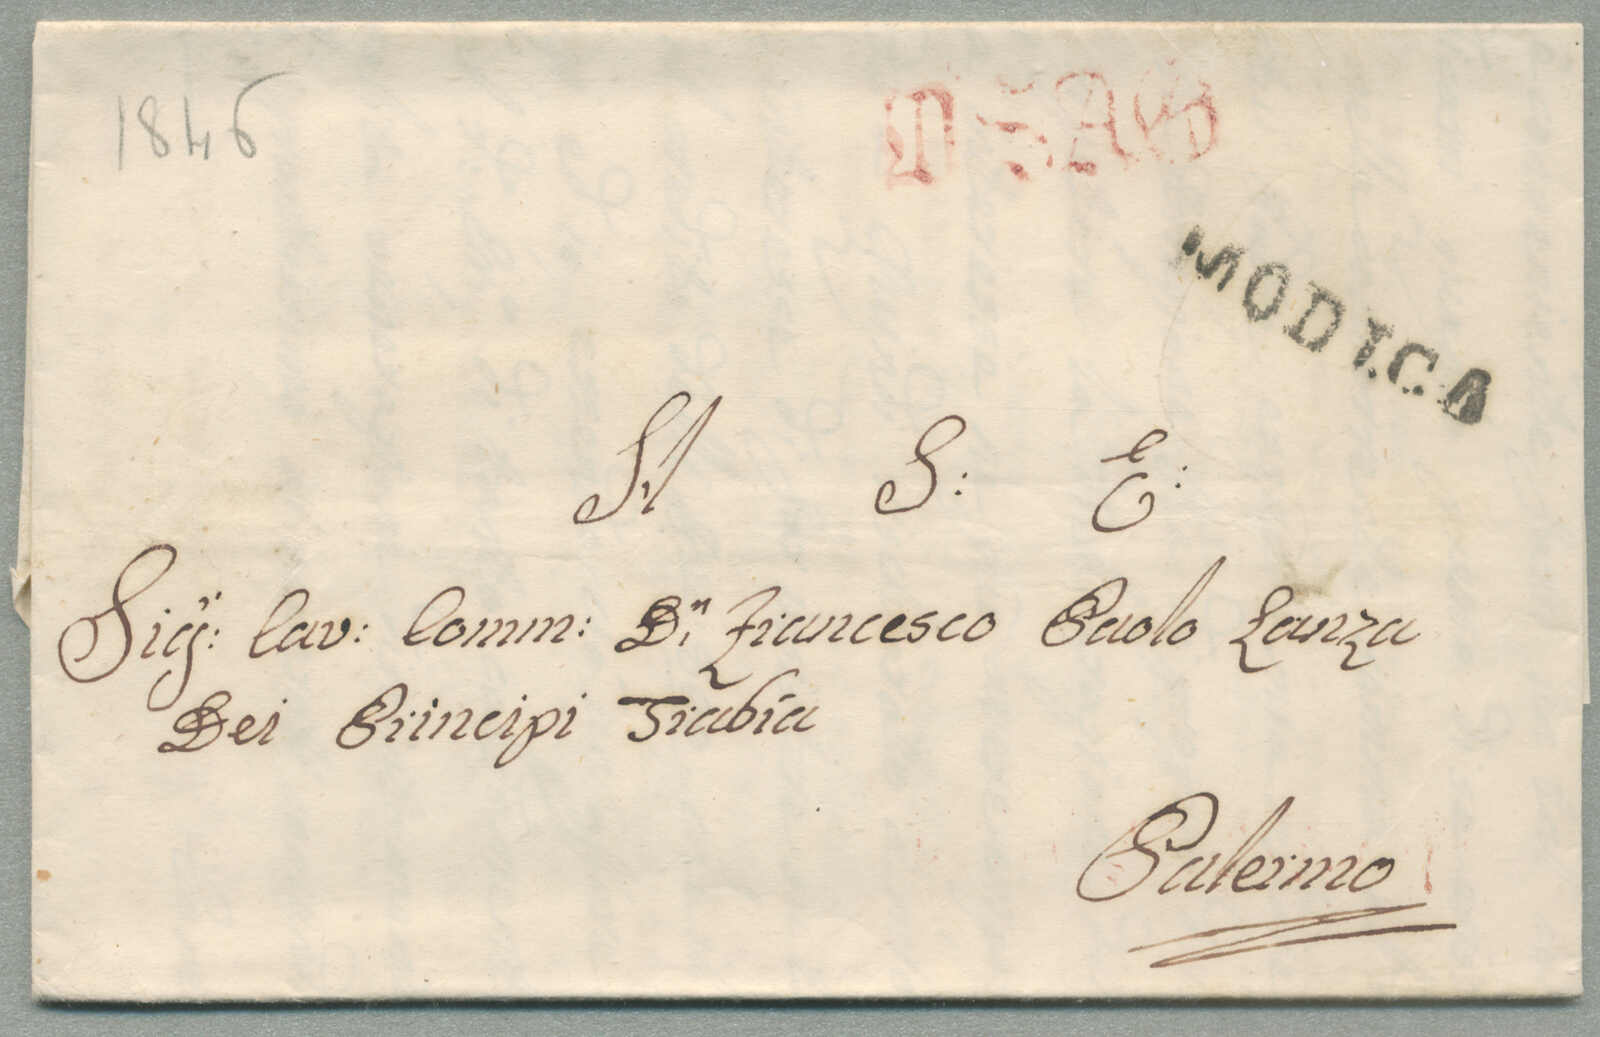 1846
MODICA
A S: E:
Sig:r Cav: Comm: D:n Francesco Paolo Lanza
Dei Principi Trabia
Palermo